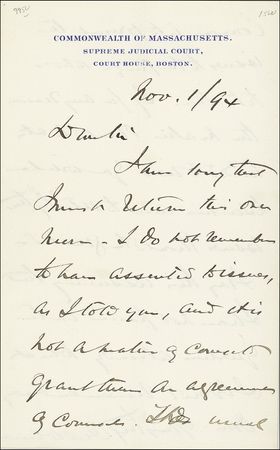 COMMONWEALTH OF MASSACHUSETTS.
SUPREME JUDICIAL COURT,
COURT HOUSE, BOSTON.
Nov. 1/94
Dear Sir
I am sorry that
I must return this once
more - I do not remember
to have assented to issues,
as I told you, and it is
not a matter of course to
grant them on agreement
of counsel. The usual